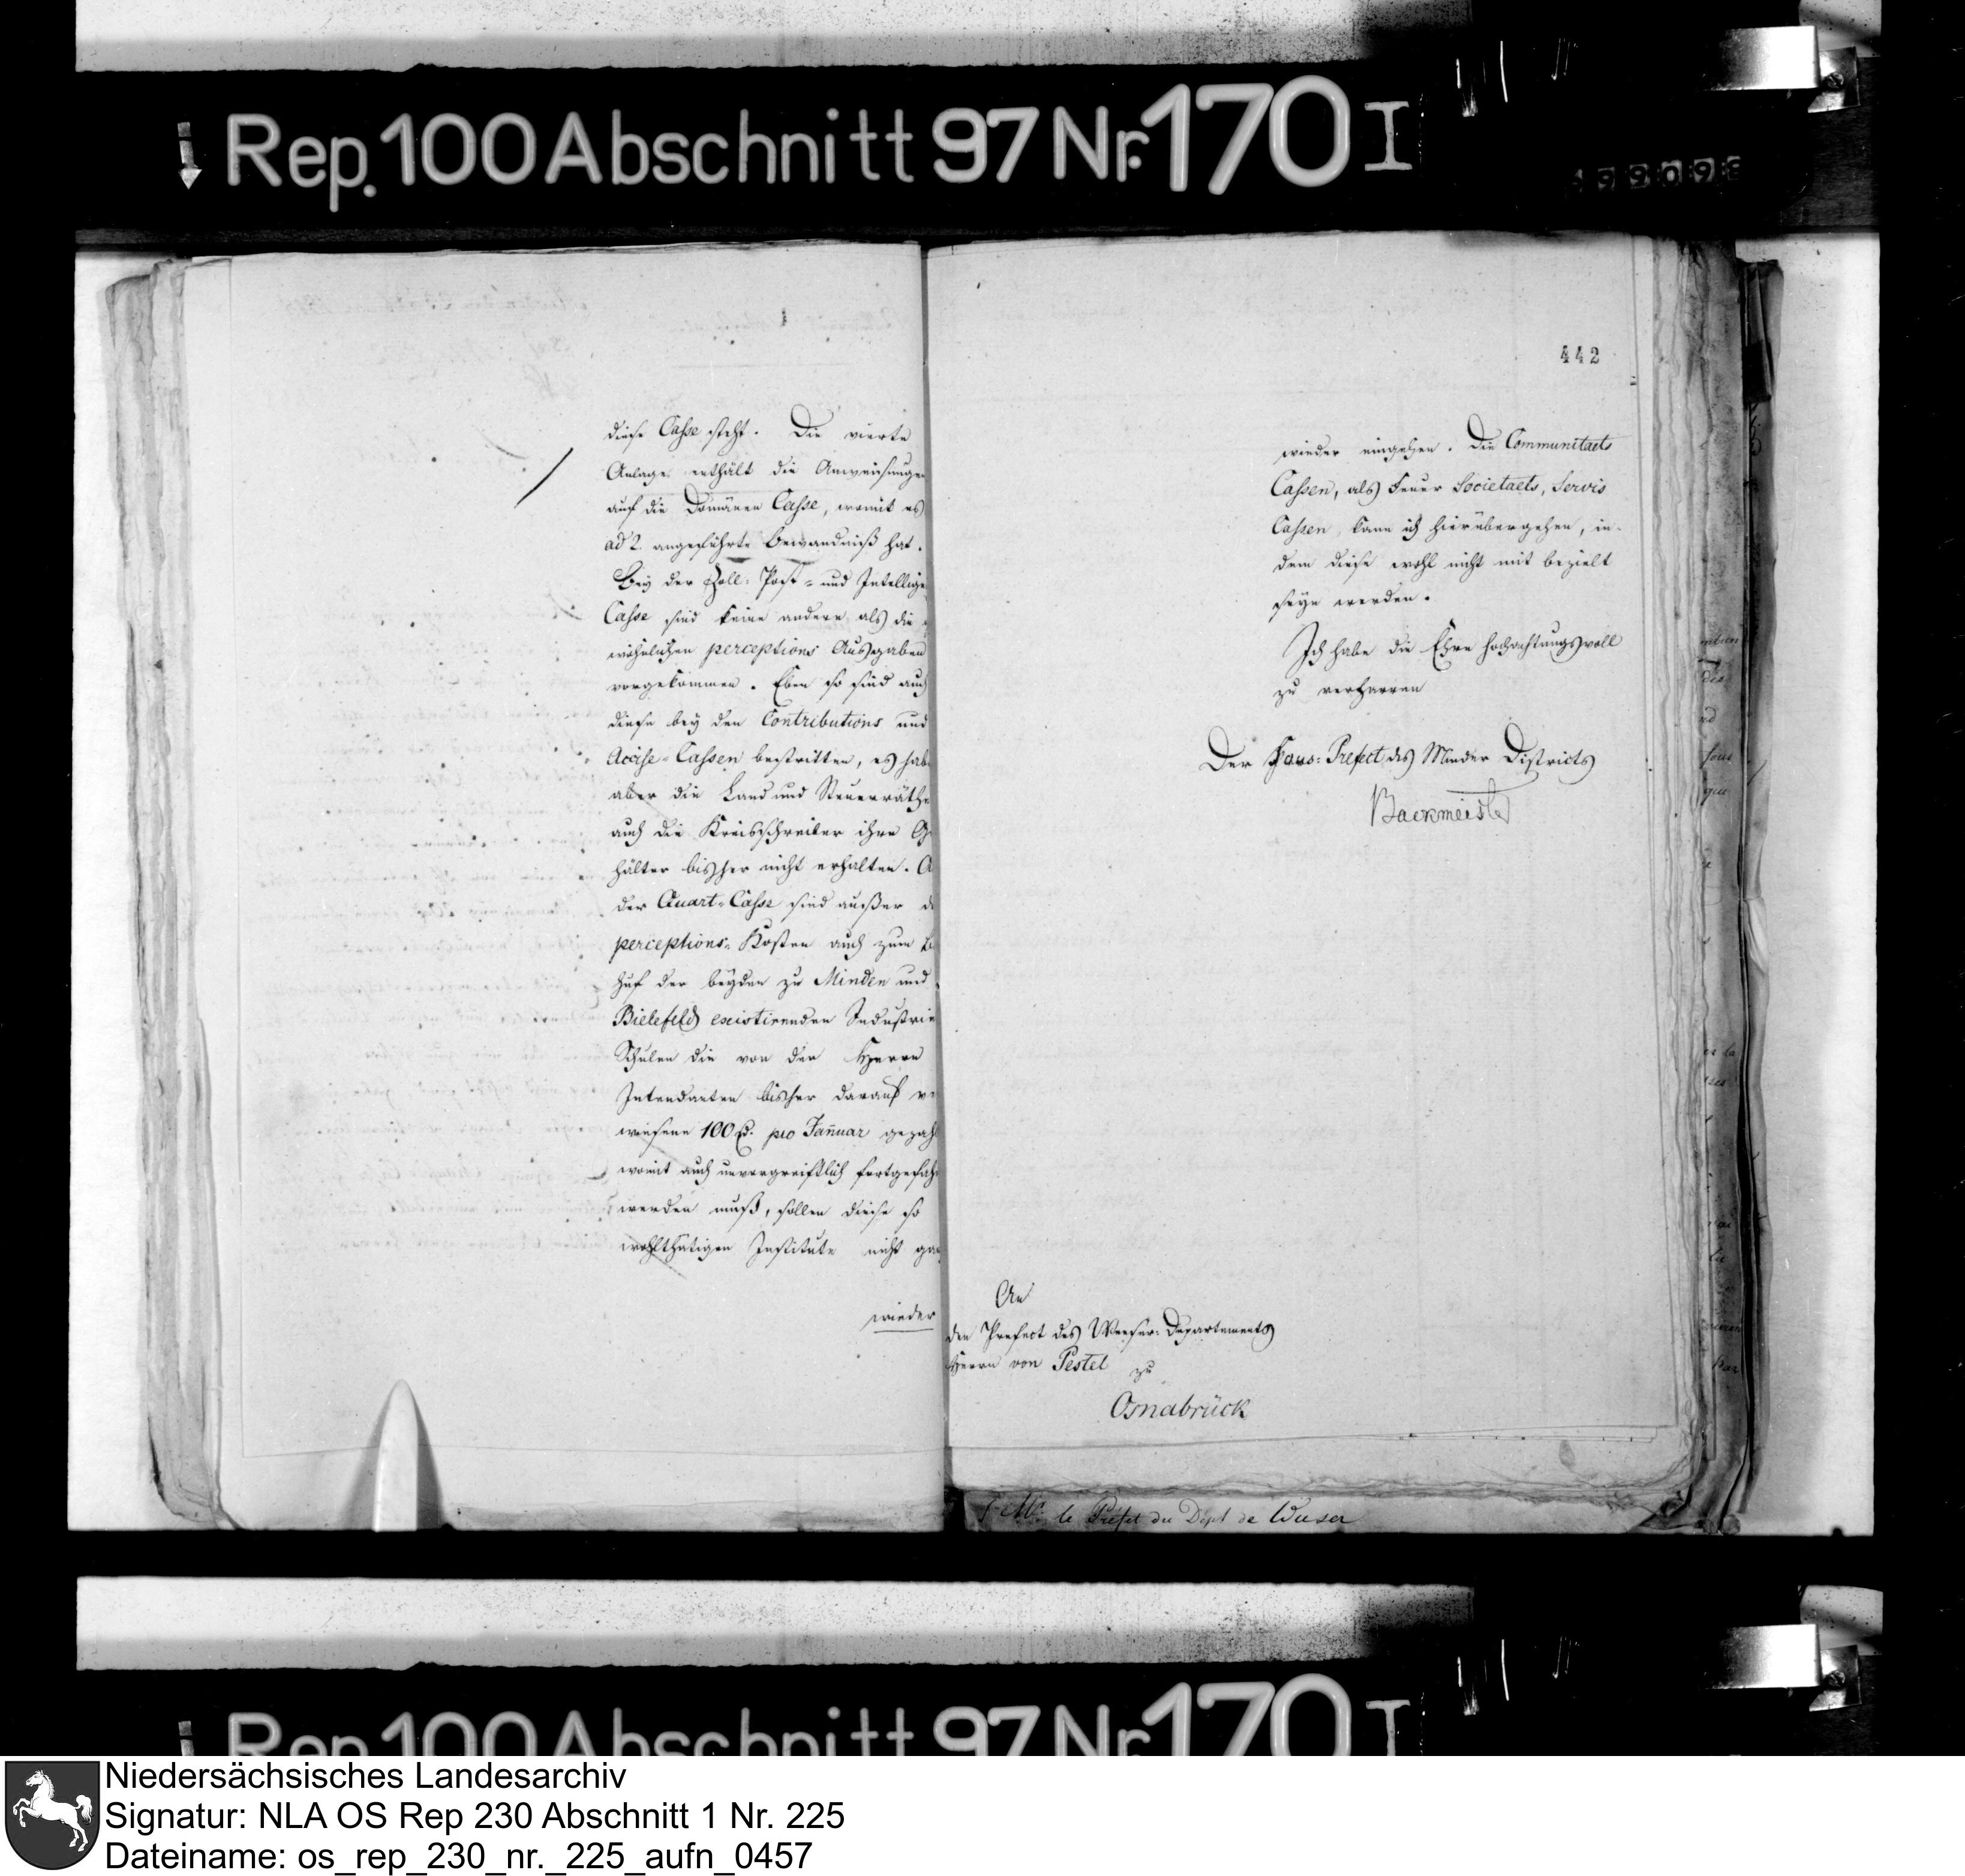 Rep. 100 Abschnitt 97 Nr. 170 I
diese Casse steht. Die vierte
Anlage enthält die Anweisunge
auf die Domänen Casse, womit es
ad 2. angeführte Bewandniß hat.
Bey der Zoll- Post- und Intellige
Casse sind keine andere als die
wöhnlichen perceptions Ausgaben
vorgekommen. Eben so sind auch
diese bey den Contributions und
Accise-Cassen bestritten, es hab
aber die Land und Steuerräthe
auch die Kreisschreiber ihre G
hälter bisher nicht erhalten. A
der Quart-Casse sind außer d
perceptions-Kosten auch zum B
huf der beyden zu Minden und
Bielefeld existirenden Industrie
Schulen die von der Herrn
Intendanten bisher darauf ve
wiesene 100 pro Januar gezah
womit auch unvorgreiflich fortgefah
werden muß, sollen diese so
wohlthätigen Institute nicht ga
wieder
442
wieder eingehen. Die Communitaets
Cassen, als Feuer Societaets, Servis
Cassen, kann ich hierübergehen, in-
dem diese wohl nicht mit bezielt
seyn werden.
Ich habe die Ehre hochachtungsvoll
zu verharren
Der Sous-Prefect des Minder Districts
Backmeister
An
den Prefect des Weser-Departements
Herrn von Pestel zu
Osnabrück
Mr. le Préfet du Dépt de Weser
Rep. 100 Abschnitt 97 Nr. 170 I
Niedersächsisches Landesarchiv
Signatur: NLA OS Rep 230 Abschnitt 1 Nr. 225
Dateiname: os_rep_230_nr._225_aufn_0457